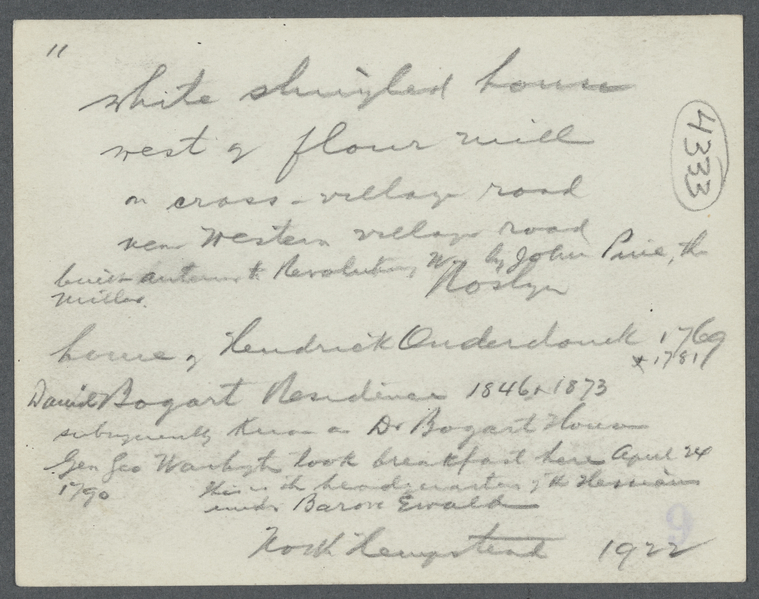 "
white shingled house
4333
west of flour mill
on cross-village road
near Western village road
built anterior to Revolutionary War by John Pine, the
miller.
Roslyn
home of Hendrick Onderdonck 1769
+ 1781
David Bogart Residence 1846 + 1873
subsequently known as Dr Bogart House
Gen Geo Washgtn took breakfast here April 24
1790
this is the headquarters of the Hessians
under Baron Ewald
North Hempstead 1922
9